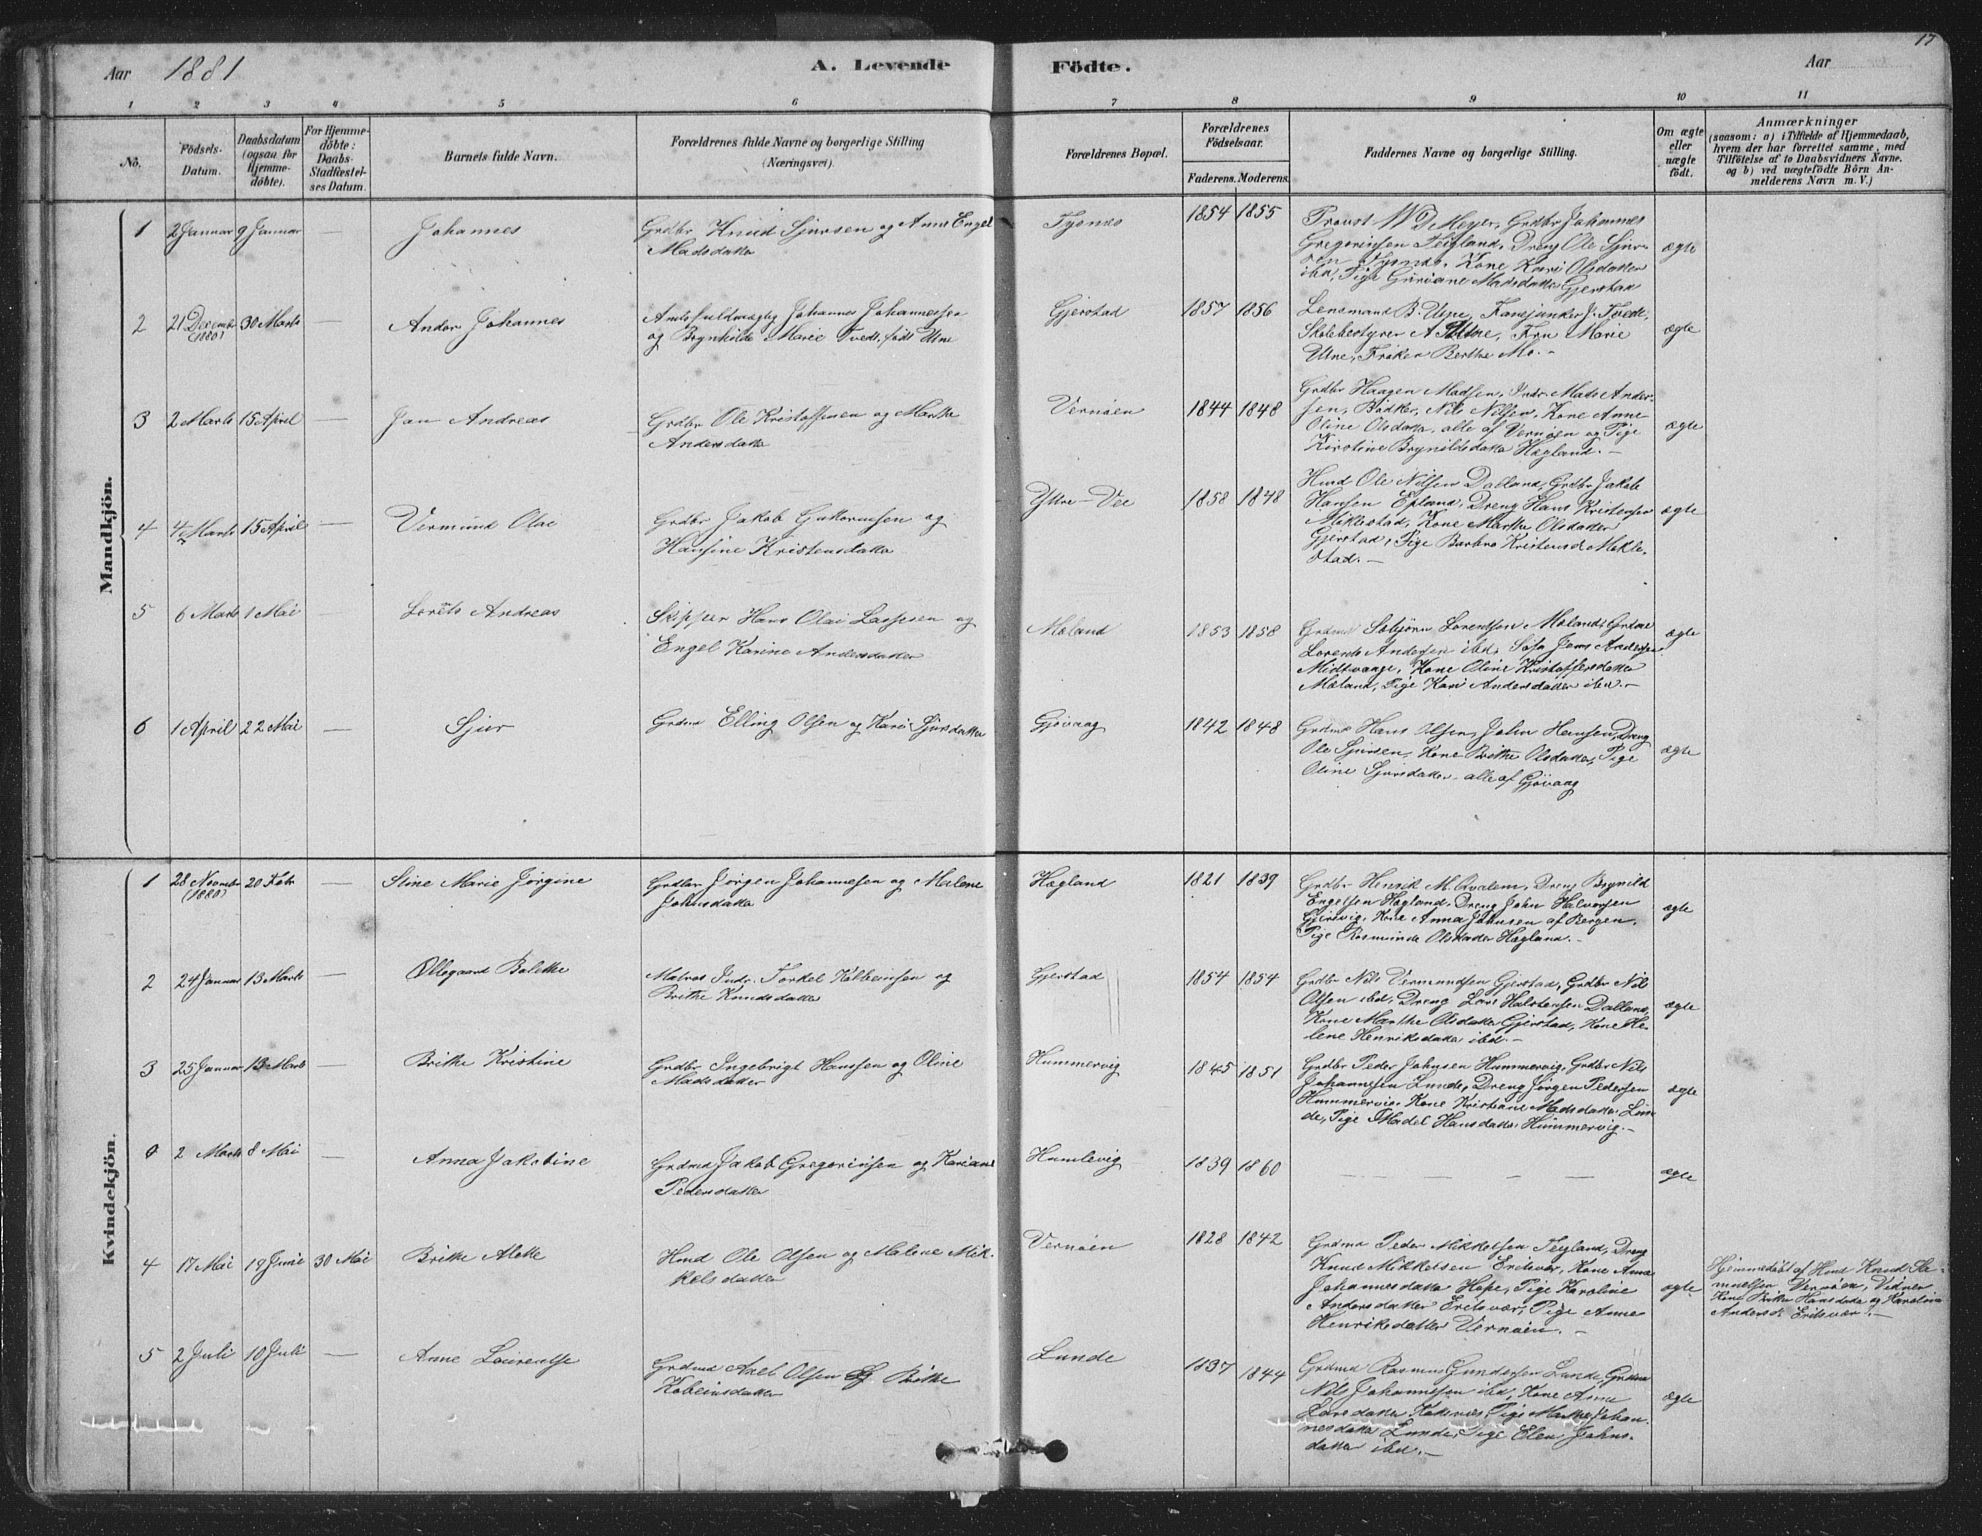 17
Aar 1881
A. Levende Födte.
Aar
1 2 3 4 5 6 7 8 9 10 11
No.
Födsels-Datum.
Daabsdatum (ogsaa for Hjemmedöbte).
For Hjemmedöbte: Daabs-Stadfæstelses Datum.
Barnets fulde Navn.
Forældrenes fulde Navne og borgerlige Stilling
(Næringsvei).
Forældrenes Bopæl.
Forældrenes Födselsaar.
Faderens. Moderens.
Faddernes Navne og borgerlige Stilling.
Om ægte eller uægte født.
Anmærkninger
(saasom: a) i Tilfælde af Hjemmedaab,
hvem der har forrettet samme, med
Tilföielse af to Daabsvidners Navne,
og b) ved uægtefödte Börn An-
melderens Navn m. V.)
Mandkjön.
1 2 Januar 9 Januar Johannes
Grdbr Knud Sjursen og Anne Engel
Madsdatter
Tysnes 1854 1855
Provst W D Meyer, Grdbr Johannes
Gregoriusen Teigland, Dreng Ole Sjur-
sen Tysnes, Kone Kari Olsdatter
ibd, Pige Guriane Madsdatter Gjerstad
ægte
2 21 Decembr (1880) 30 Marts — Andor Johannes
Amtsfuldmægtig Johannes Johannessen
og Brynhilde Marie Tvedt, født Utne
Gjerstad 1857 1856
Lensmand B. Utne, J. Tvedt,
Skolebestyrer A Utne, Fru Marie
Utne, Frøken Berthe Mo. –
ægte
3 2 Marts 15 April — Jan Andreas
Grdbr Ole Kristoffersen og Marthe
Andersdatter
Vernøen 1844 1848
Grdbr Haagen Madsen, Indr. Mads Ander-
sen, Bødker Nils Nilsen, Kone Anne
Oline Olsdatter, alle af Vernøen og Pige
Kirstine Brynildsdatter Hægland. –
ægte
4 4 Marts 15 April — Vermund Olai
Grdbr Jakob Guttormsen og
Hansine Kristensdatter
Yttre-Vee 1858 1848
Hmd Ole Nilsen Dalland, Grdbr Jakob
Hansen Epland, Dreng Hans Kristensen
Miklestad, Kone Marthe Olsdatter
Gjerstad, Pige Barbro Kristensd Mikle-
stad. –
ægte
5 6 Marts 1 Mai — Lorets Andreas
Skipper Hans Olai Lassesen og
Engel Karine Andersdatter
Mæland 1853 1858
Grdmd Sebjørn Lorentsen Mæland, Grdm
Lorents Andersen ibd, Jens Andersen
Midtvaage, Kone Oline Kristoffersdatter
Mæland, Pige Kari Andersdatter ibd. –
ægte
6 1 April 22 Mai — Sjur
Grdmd Elling Olsen og Kari Sjursdatter
Gjøvaag 1842 1848
Grdmd Hans Olsen, John Hansen, Dreng
Ole Sjursen, Kone Brithe Olsdatter, Pige
Oline Sjursdatter, alle af Gjøvaag
ægte
Kvindekjön.
1 28 Novmbr (1880) 20 Febr — Stine Marie Jørgine
Grdbr Jørgen Johannesen og Malene
Johnsdatter
Hægland 1821 1839
Grdbr Henrik M. Kvalem, Dreng Brynild
Engelsen Hægland, Dreng John Halvorsen
Gjersvig, Kone Anna Johnsen af Bergen,
Pige Rasmunde Olsdatter Hægland. –
ægte
2 24 Januar 13 Marts — Ollegaard Bolette
Matros Indr. Torkel Kolbensen og
Brithe Knudsdatter
Gjerstad 1854 1854
Grdbr Nils Vermundsen Gjerstad, Grdbr Nils
Olsen ibd, Dreng Lars Halstensen Dalland,
Kone Marthe Olsdatter Gjerstad, Kone He-
lene Henriksdatter ibd. –
ægte
3 25 Januar 13 Marts — Brithe Kristine
Grdbr Ingebrigt Hanssen og Oline
Madsdatter
Hummervig 1845 1851
Grdbr Peder Johnsen Hummervig, Grdbr Nils
Johannesen Lunde, Dreng Jørgen Pedersen
Hummervig, Kone Kristiane Madsdatter Lun-
de, Pige Madel Hansdatter Hummervig. –
ægte
0 2 Marts 8 Mai — Anna Jakobine
Grdmd Jakob Gregoriusen og Kariane
Pedersdatter
Humlevig 1839 1860
— — — —
ægte
4 17 Mai 19 Juni 30 Mai Brithe Alette
Hmd Ole Olsen og Malene Mik-
kelsdatter
Vernøen 1828 1842
Grdmd Peder Mikkelsen Teigland, Dreng
Knud Mikkelsen Eritsvær, Kone Anna
Johannesdatter Hope, Pige Karoline
Andersdatter Eritsvær, Pige Anne
Henriksdatter Vernøen. –
ægte
Hjemmedøbt af Hmd Knud Sa-
muelsen Vernøen, Vidner
Kone Brithe Hansdatter og Karoline
Andersd: Eritsvær. –
5 2 Juli 10 Juli — Anne Laurentse
Grdmd Axel Olsen og Brithe
Kobeinsdatter
Lunde 1837 1844
Grdmd Rasmus Gundersen Lunde, Grdmd
Nils Johannessen ibd, Kone Anna
Larsdatter Kaksnes, Pige Marthe Johan-
nesdatter Lunde, Pige Elen Johns-
datter ibd. –
ægte